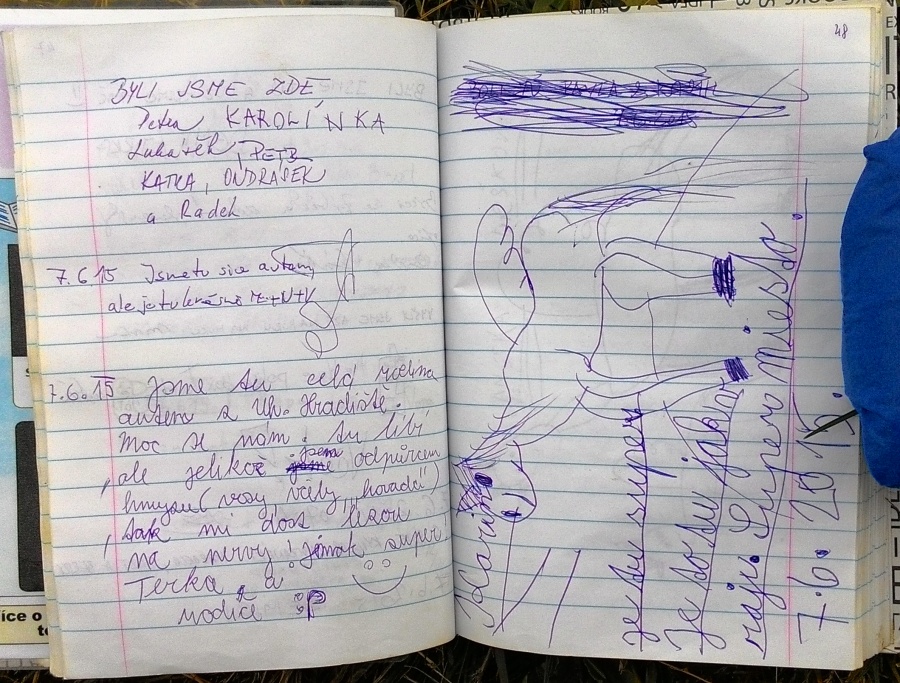 BYLI JSME ZDE
Petra KAROLÍNKA
Lukášek, PETR
KATKA, ONDRÁŠEK
a Radek
7.6 15 Jsme tu sice autem
ale je tu krásně
7.6.15 Jsme tu celá rodina
autem z Uh. Hradiště.
Moc se nám tu líbí
, ale jelikož jsem odpůrcem
hmyzu (vosy, včely, "hovada")
, tak mi dost lezou
na nervy! jinak super!
Terka a
rodiče :P
48
je tu super
Je to tu jako v
raji. Super Miesto.
7.6. 2015.
íce o